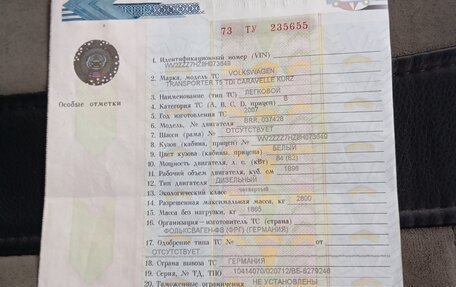 73 ТУ 235655
1. Идентификационный номер (VIN) WV2ZZZ7HZ8H073549
2. Марка, модель ТС VOLKSWAGEN
TRANSPORTER T5 TDI CARAVELLE KURZ
3. Наименование (тип ТС) ЛЕГКОВОЙ
Особые отметки
4. Категория ТС (А, В, С, D, прицеп) В
5. Год изготовления ТС 2007
6. Модель, № двигателя BRR, 037428
7. Шасси (рама) № ОТСУТСТВУЕТ
8. Кузов (кабина, прицеп) № WV2ZZZ7HZ8H073549
9. Цвет кузова (кабины, прицепа) БЕЛЫЙ
10. Мощность двигателя, л. с. (кВт) 84 (62)
11. Рабочий объем двигателя, куб. см 1896
12. Тип двигателя ДИЗЕЛЬНЫЙ
13. Экологический класс четвертый
14. Разрешенная максимальная масса, кг 2800
15. Масса без нагрузки, кг 1865
16. Организация—изготовитель ТС (страна)
ФОЛЬКСВАГЕНФВ (ФРГ) (ГЕРМАНИЯ)
17. Одобрение типа ТС № от
ОТСУТСТВУЕТ
18. Страна вывоза ТС ГЕРМАНИЯ
19. Серия, № ТД, ТПО 10414070/020712/ВБ-6279246
20. Таможенные ограничения НЕ УСТАНОВЛЕНЫ